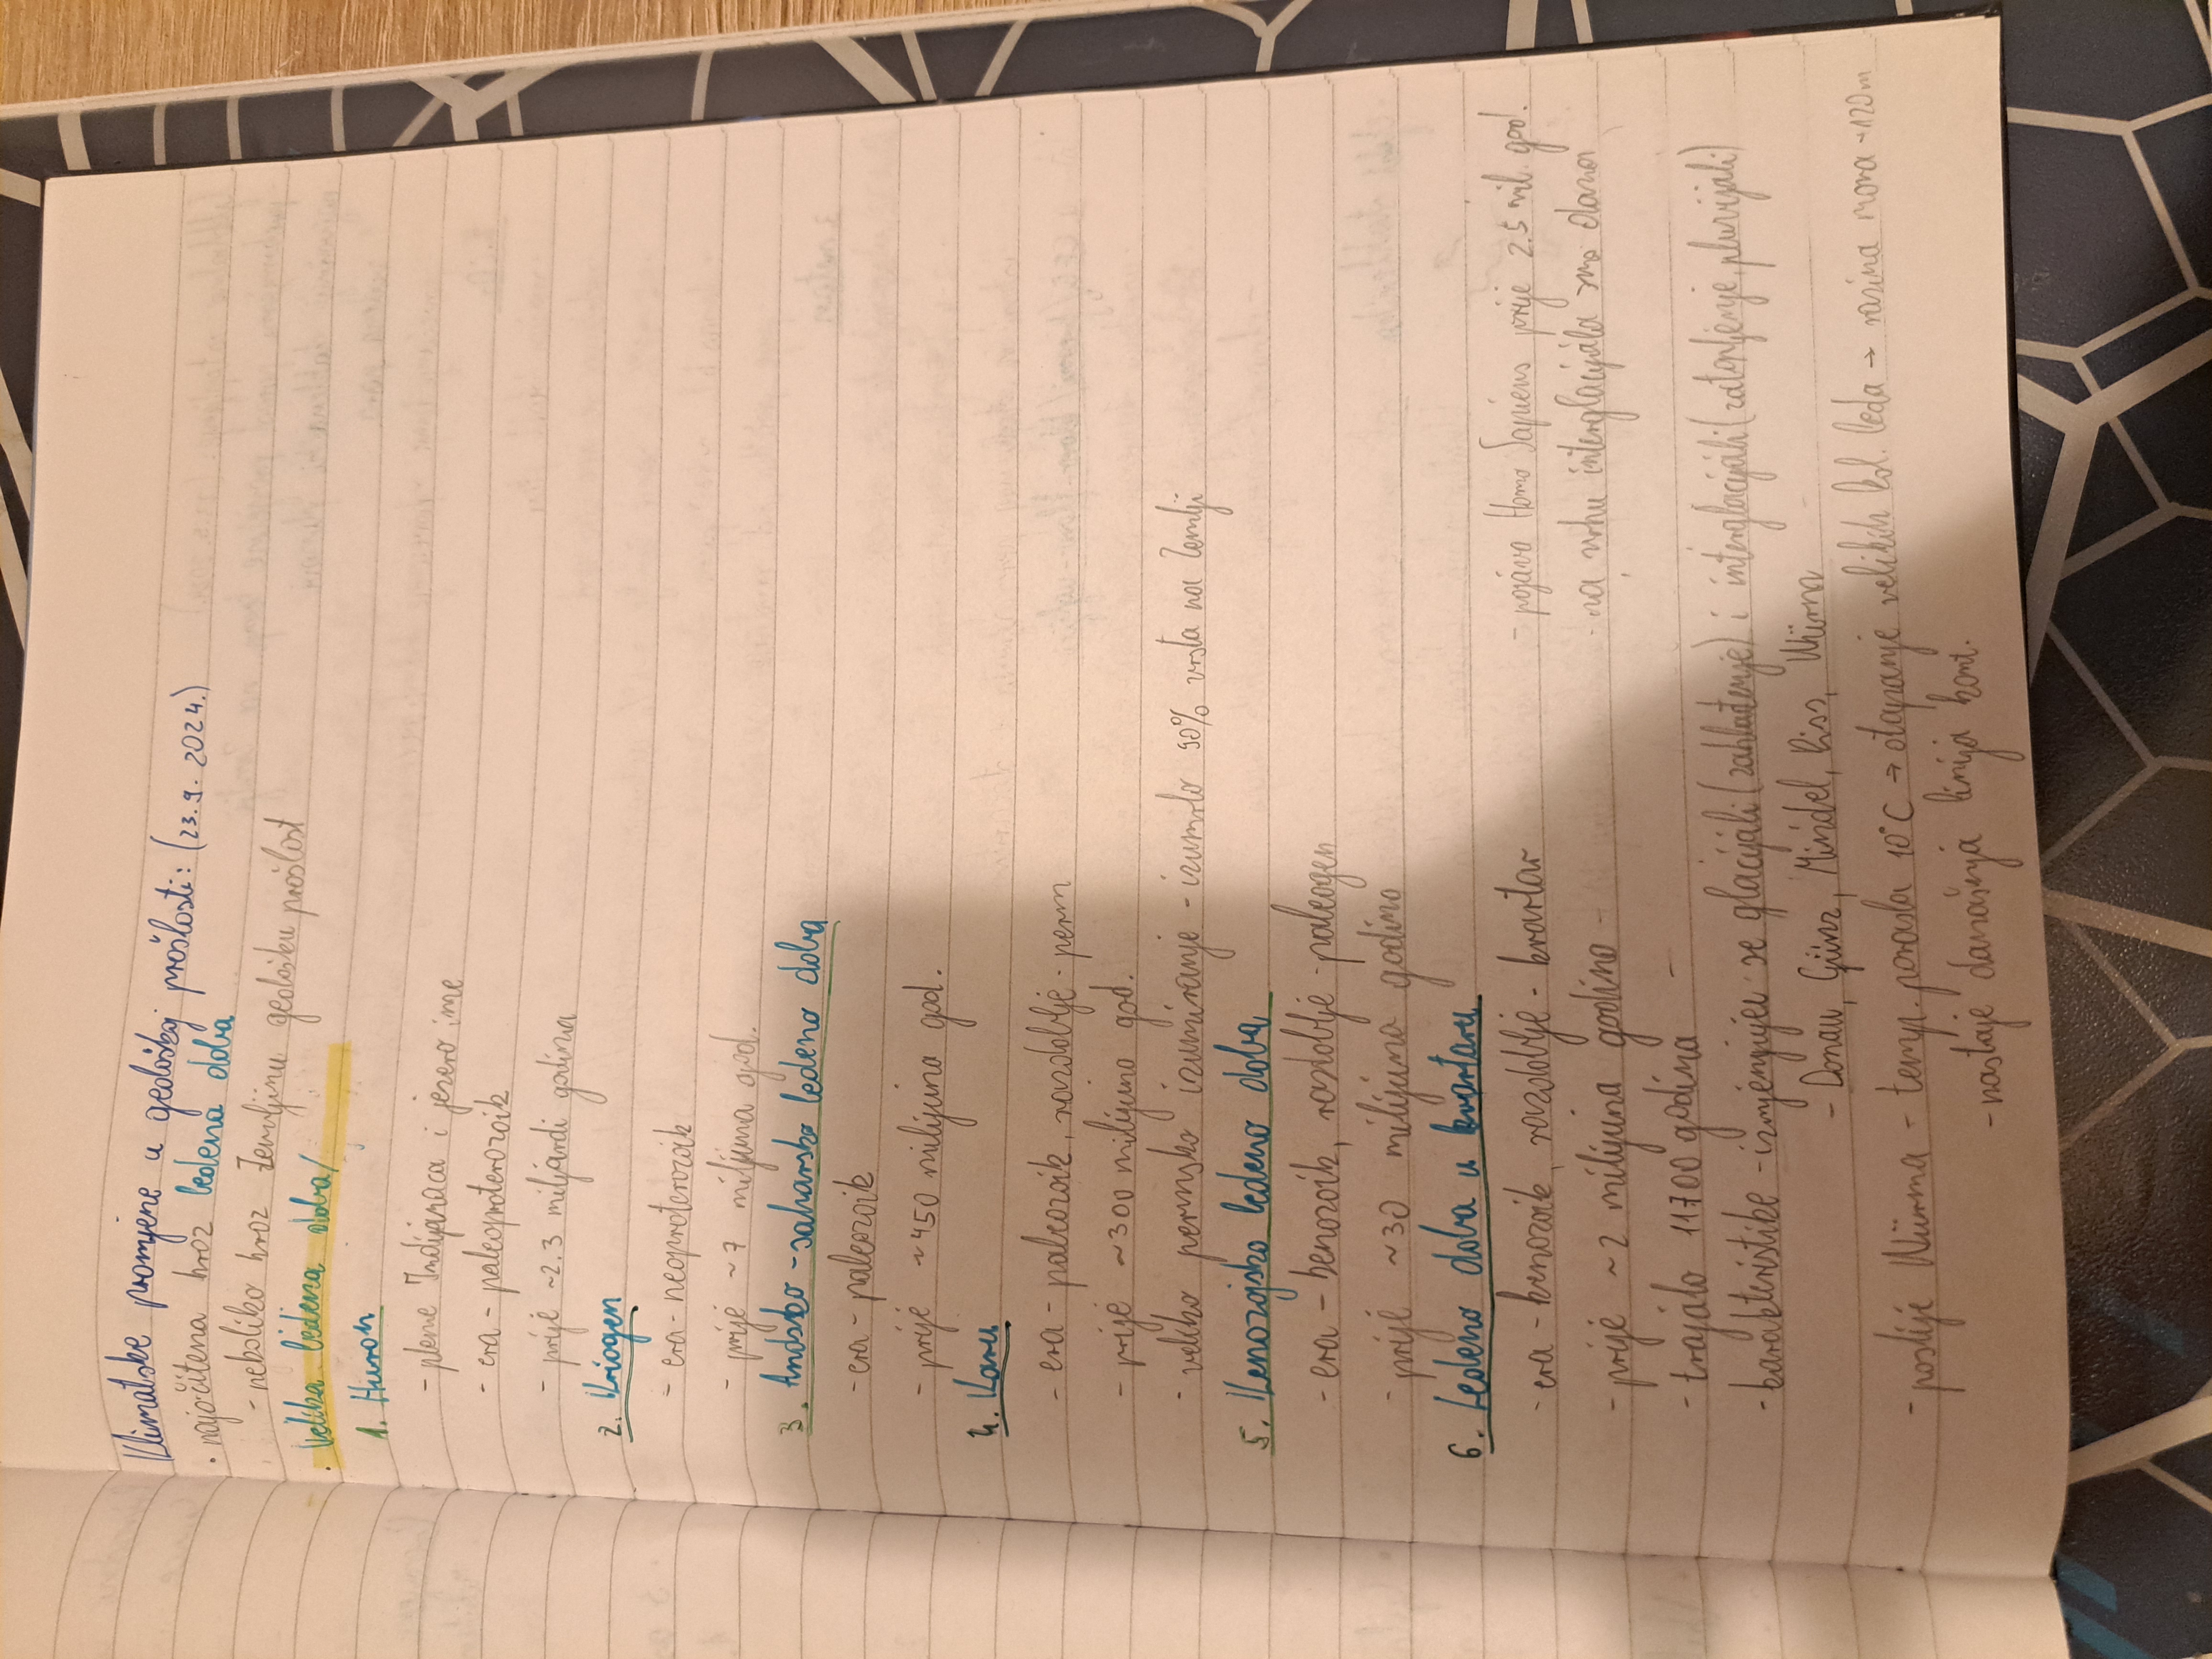 Klimatske promjene u geološkoj prošlosti: (23.9. 2024.)
· najočitena kroz ledena doba
- nekoliko kroz Zemljinu geološku prošlost
· Velika ledena doba/
1. Huron
- pleme Indijanaca i jezero ime
- era - paleoproterozoik
- prije ~2.3 milijardi godina
2. Kriogen
- era - neoproterozoik
- prije ~7 milijuna god.
3. Andsko - saharsko ledeno doba
- era - paleozoik
- prije ~450 milijuna god.
4. Karu
- era - paleozoik, razdoblje - perm
- prije ~300 milijuna god.
- veliko permsko izumiranje - izumrlo 90% vrsta na Zemlji
5. Kenozojsko ledeno doba
- era - kenozoik, razdoblje - paleogen
- prije ~30 milijuna godina
6. Ledeno doba u kvartaru
- era - kenozoik, razdoblje - kvartar
- pojava Homo Sapiens prije 2.5 mil. god.
- prije ~2 milijuna godina -
- na vrhu interglacijala smo danas
- trajalo 11700 godina -
- karakteristike - izmjenjuju se glacijali (zahlađenje) i interglacijali (zatopljenje, pluvijali)
- Donau, Günz, Mindel, Riss, Würm
- poslije Würma - temp. porasla 10°C → otapanje velikih kol. leda → razina mora +120m
- nastaje današnja linija kont.